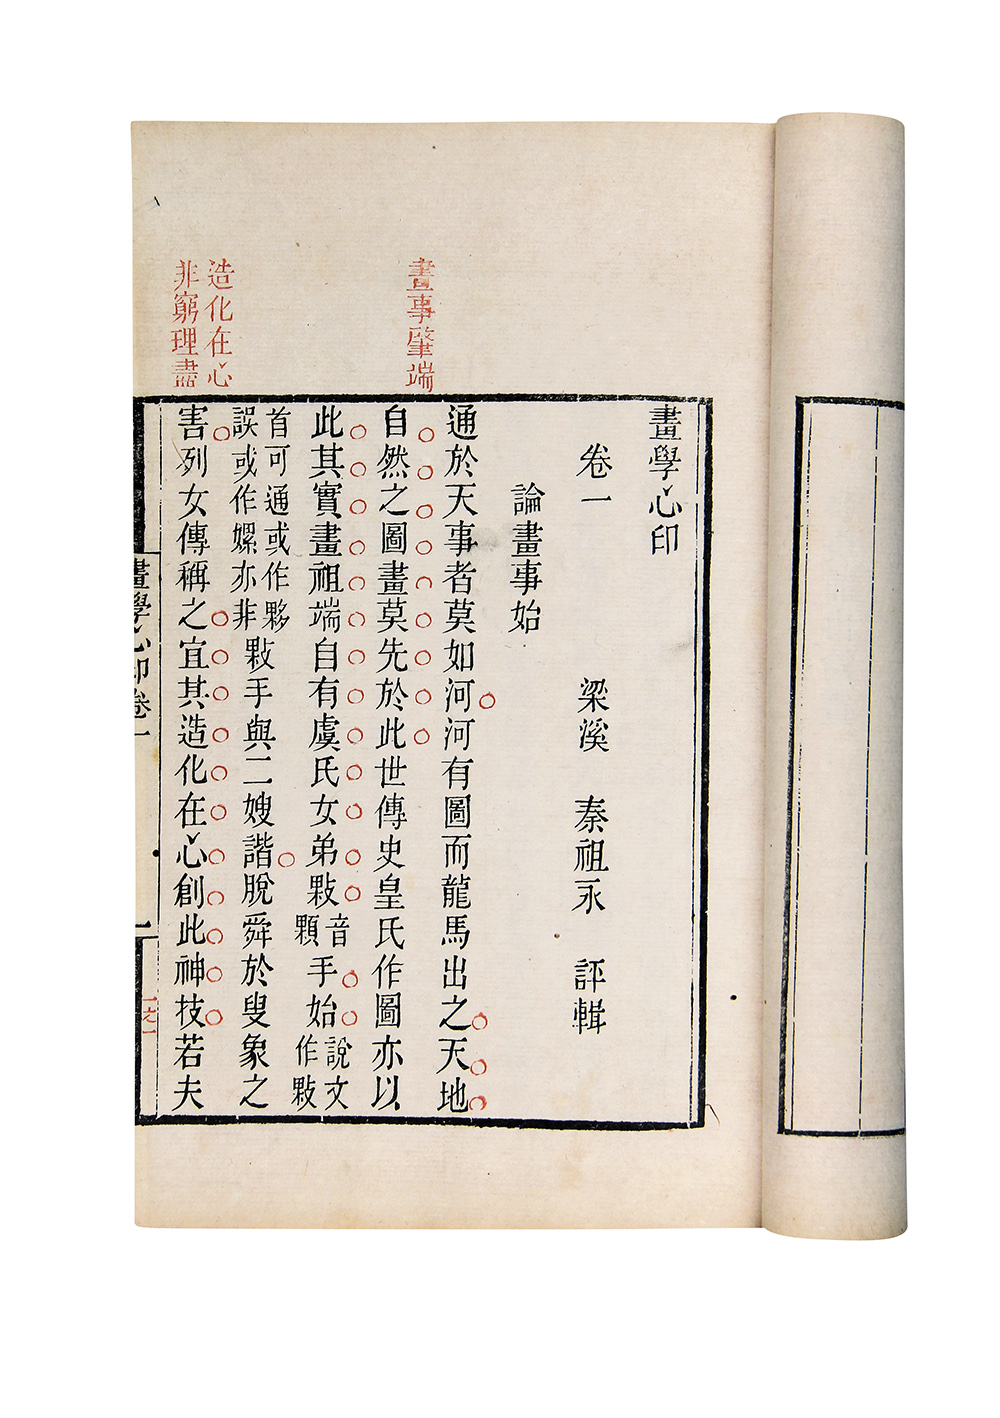 畫學心印
卷一 梁溪 秦祖永 評輯
論畫事始
通於天事者莫如河河有圖而龍馬出之天地
自然之圖畫莫先於此世傳史皇氏作圖亦以
此其實畫祖端自有虞氏女弟敤音顆手始說文作敤
首可通或作夥誤或作嫘亦非敤手與二嫂諧脫舜於叟象之
害列女傳稱之宜其造化在心創此神技若夫
畫事肇端
造化在心
非窮理盡
畫學心印卷一
一之一